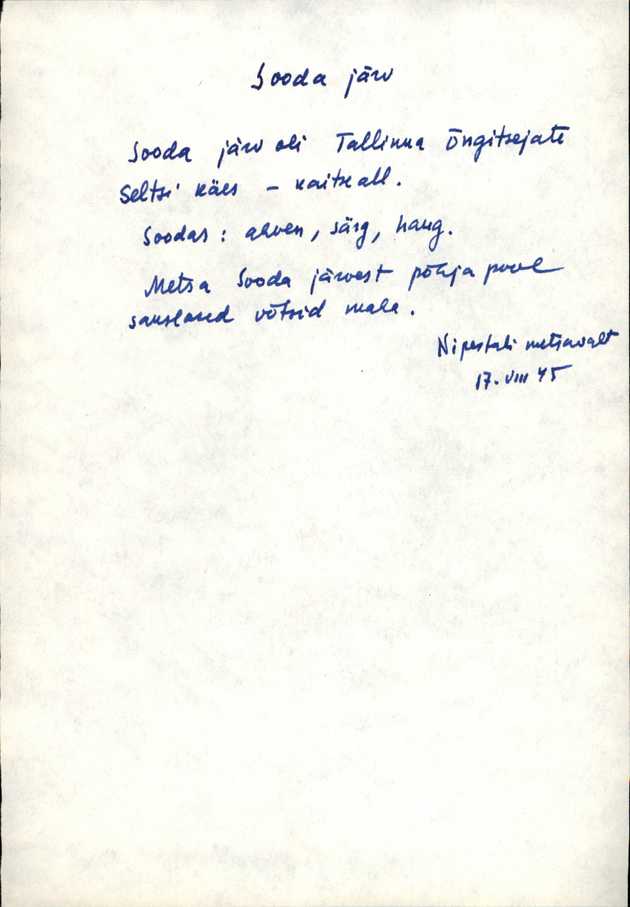 Sooda järv
Sooda järv oli Tallinna Õngitsejate
Seltsi käes – kaitse all.
Soodas: ahven, särg, haug.
Metsa Sooda järvest põhja pool
sakslased võtsid maha.
Nipestali metsavaht
17. VIII 45